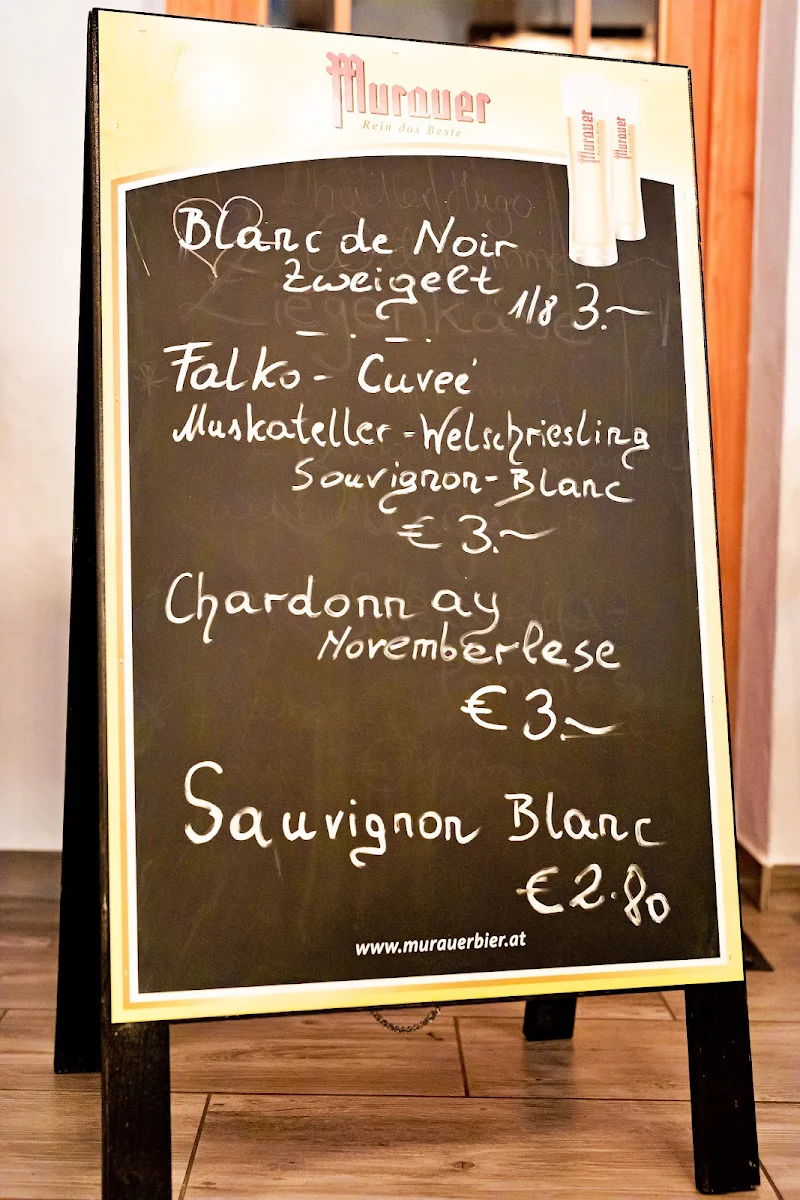 Murauer
Rein das Beste
Murauer
Murauer
Blanc de Noir
Zweigelt
1/8 3.~
Falko - Cuveé
Muskateller - Welschriesling
Souvignon - Blanc
€ 3.~
Chardonn ay
Novemberlese
€ 3.~
Sauvignon Blanc
€ 2.80
www.murauerbier.at